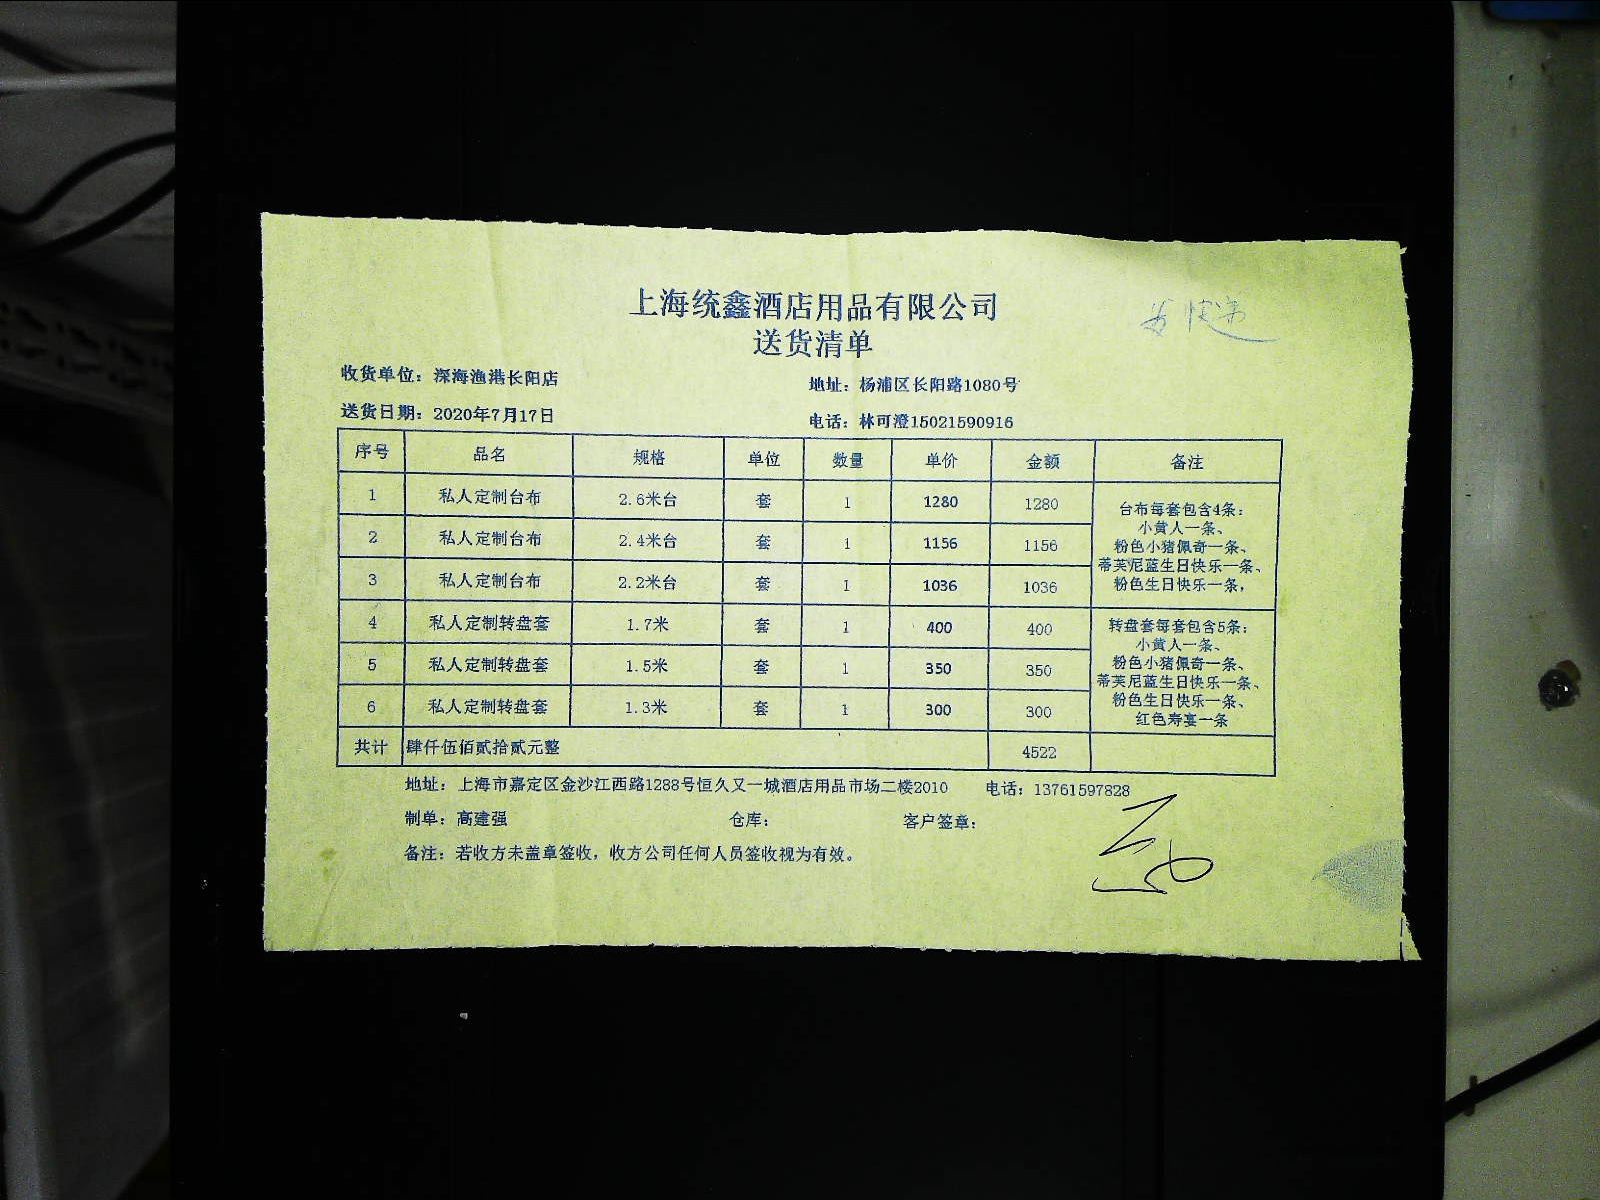 上海统鑫酒店用品有限公司
送货清单
收货单位：深海渔港长阳店 地址：杨浦区长阳路1080号
送货日期：2020年7月17日 电话：林可澄15021590916
序号 品名 规格 单位 数量 单价 金额 备注
1 私人定制台布 2.6米台 套 1 1280 1280
2 私人定制台布 2.4米台 套 1 1156 1156
3 私人定制台布 2.2米台 套 1 1036 1036
台布每套包含4条：
小黄人一条、
粉色小猪佩奇一条、
蒂芙尼蓝生日快乐一条、
粉色生日快乐一条，
4 私人定制转盘套 1.7米 套 1 400 400
5 私人定制转盘套 1.5米 套 1 350 350
6 私人定制转盘套 1.3米 套 1 300 300
转盘套每套包含5条：
小黄人一条、
粉色小猪佩奇一条、
蒂芙尼蓝生日快乐一条、
粉色生日快乐一条、
红色寿宴一条
共计 肆仟伍佰贰拾贰元整 4522
地址：上海市嘉定区金沙江西路1288号恒久又一城酒店用品市场二楼2010 电话：13761597828
制单：高建强 仓库： 客户签章：
备注：若收方未盖章签收，收方公司任何人员签收视为有效。